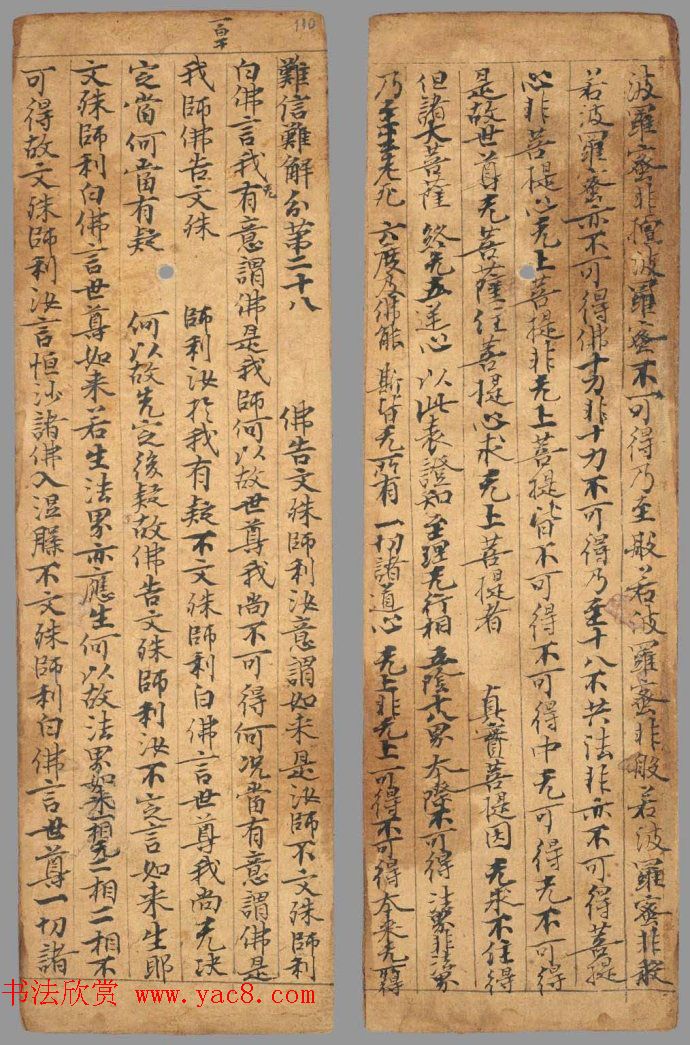 波羅蜜非檀波羅蜜不可得乃至般若波羅蜜非般若波羅蜜非般
若波羅蜜亦不可得佛十力非十力不可得乃至十八不共法非亦不可得菩提
心非菩提心无上菩提非无上菩提皆不可得不可得中无可得无不可得
是故世尊无菩薩住菩提心求无上菩提者 真實菩提因 无求不住得
但諸大菩薩 終无五逆心 以此表證知 至理无行相 五陰十八界 本際不可得 法界非法界
乃至生老死 六度及佛能 斯皆无所有 一切諸道心 无上非无上 可得不可得 本来无所得
110
難信難解分第二十八 佛告文殊師利汝意謂如来是汝師不文殊師利
白佛言我无有意謂佛是我師何以故世尊我尚不可得何況當有意謂佛是
我師佛告文殊 師利汝於我有疑不文殊師利白佛言世尊我尚无決
定當何當有疑 何以故先定後疑故佛告文殊師利汝不定言如来生耶
文殊師利白佛言世尊如来若生法界亦應生何以故法界如来一相无二相二相不
可得故文殊師利汝言恒沙諸佛入涅槃不文殊師利白佛言世尊一切諸
书法欣赏 www.yac8.com